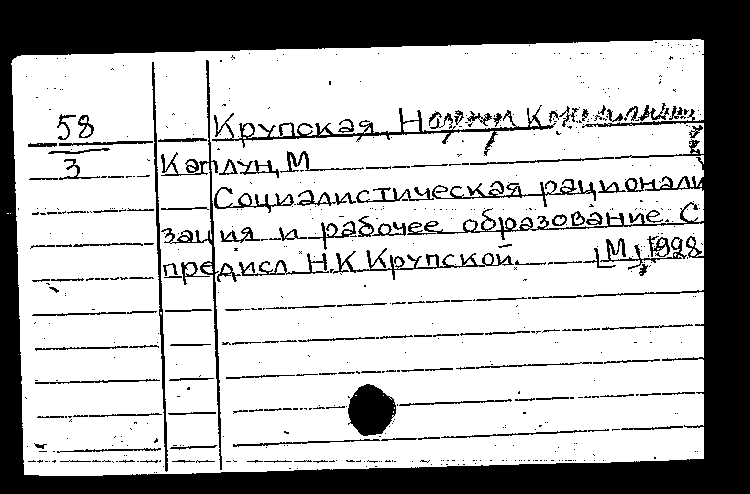 58
3
Крупская, Н
Каплун, М
Социалистическая рационали
зация и рабочее образование. С
предисл. Н.К Крупской. [М.], 1928